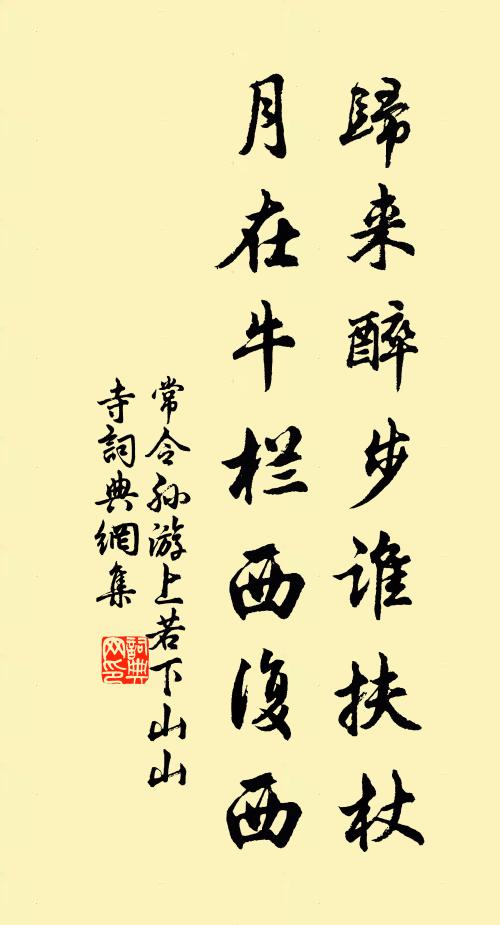 歸来醉步谁扶杖
月在牛栏西復西
常令孙游上若下山山
寺詞典網集
詞典
网印